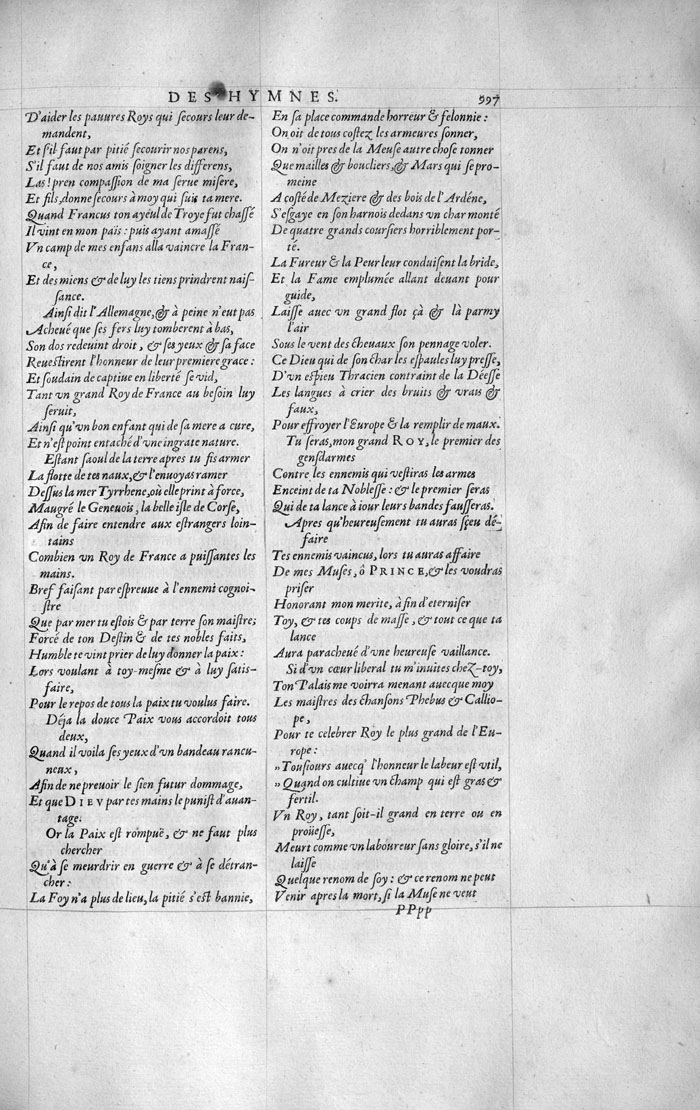 DES HYMNES. 997
D'aider les pauures Roys qui secours leur de-
mandent,
Et s'il faut par pitié secourir nos parens,
S'il faut de nos amis soigner les differens,
Las! pren compassion de ma serue misere,
Et fils, donne secours à moy qui suis ta mere.
Quand Francus ton ayeul de Troye fut chassé
Il vint en mon païs: puis ayant amassé
Vn camp de mes enfans alla vaincre la Fran-
ce,
Et des miens & de luy les tiens prindrent nais-
sance.
Ainsi dit l'Allemagne, & à peine n'eut pas
Acheué que ses fers luy tomberent à bas,
Son dos redeuint droit, & ses yeux & sa face
Reuestirent l'honneur de leur premiere grace:
Et soudain de captiue en liberté se vid,
Tant vn grand Roy de France au besoin luy
seruit,
Ainsi qu'vn bon enfant qui de sa mere a cure,
Et n'est point entaché d'vne ingrate nature.
Estant saoul de la terre apres tu fis armer
La flotte de tes naux, & l'enuoyas ramer
Dessus la mer Tyrrhene, où elle print à force,
Maugré le Geneuois, la belle isle de Corse,
Afin de faire entendre aux estrangers loin-
tains
Combien vn Roy de France a puissantes les
mains.
Bref faisant par espreuue à l'ennemi cognoi-
stre
Que par mer tu estois & par terre son maistre;
Forcé de ton Destin & de tes nobles faits,
Humble te vint prier de luy donner la paix:
Lors voulant à toy-mesme & à luy satis-
faire,
Pour le repos de tous la paix tu voulus faire.
Déja la douce Paix vous accordoit tous
deux,
Quand il voila ses yeux d'un bandeau rancu-
neux,
Afin de ne preuoir le sien futur dommage,
Et que DIEV par tes mains le punist d'auan-
tage.
Or la Paix est rompuë, & ne faut plus
chercher
Qu'à se meurdrir en guerre & à se détran-
cher:
La Foy n'a plus de lieu, la pitié s'est bannie,
En sa place commande horreur & felonnie:
On oit de tous costez les armeures sonner,
On n'oit pres de la Meuse autre chose tonner
Que mailles & boucliers, & Mars qui se pro-
meine
A costé de Meziere & des bois de l'Ardéne,
S'esgaye en son harnois dedans vn char monté
De quatre grands coursiers horriblement por-
té.
La Fureur & la Peur leur conduisent la bride,
Et la Fame emplumée allant deuant pour
guide,
Laisse auec vn grand flot çà & là parmy
l'air
Sous le vent des cheuaux son pennage voler.
Ce Dieu qui de son char les espaules luy presse,
D'vn espieu Thracien contraint de la Déesse
Les langues à crier des bruits & vrais &
faux,
Pour effroyer l'Europe & la remplir de maux.
Tu seras, mon grand ROY, le premier des
gensdarmes
Contre les ennemis qui vestiras les armes
Enceint de ta Noblesse: & le premier seras
Qui de ta lance à iour leurs bandes fausseras.
Apres qu'heureusement tu auras sçeu dé-
faire
Tes ennemis vaincus, lors tu auras affaire
De mes Muses, ô PRINCE, & les voudras
priser
Honorant mon merite, à fin d'eterniser
Toy, & tes coups de masse, & tout ce que ta
lance
Aura paracheué d'vne heureuse vaillance.
Si d'vn cœur liberal tu m'inuites chez-toy,
Ton Palais me voirra menant auecque moy
Les maistres des chansons Phebus & Callio-
pe,
Pour te celebrer Roy le plus grand de l'Eu-
rope:
„Tousiours auecq' l'honneur le labeur est vtil,
„Quand on cultiue vn champ qui est gras &
fertil.
Vn Roy, tant soit-il grand en terre ou en
proüesse,
Meurt comme vn laboureur sans gloire, s'il ne
laisse
Quelque renom de soy: & ce renom ne peut
Venir apres la mort, si la Muse ne veut
PPpp